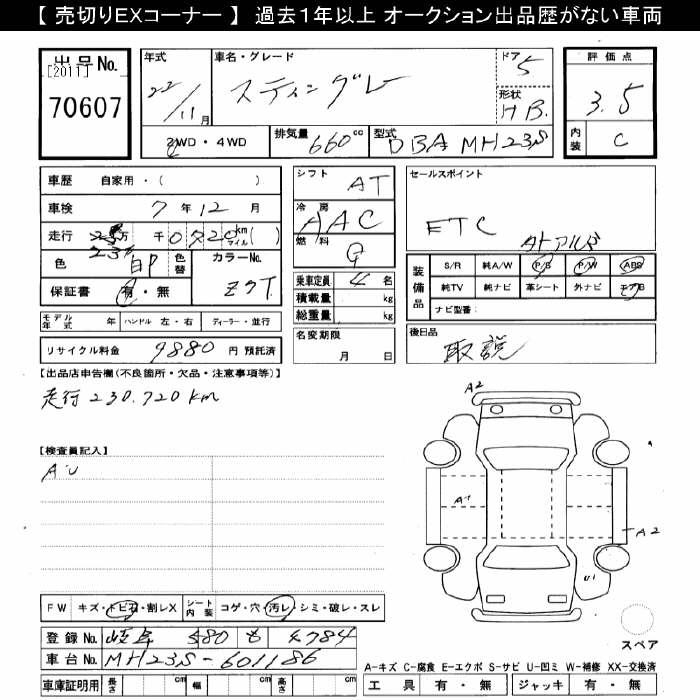 【 売切りEXコーナー 】 過去1年以上 オークション出品歴がない車両
出品No. [2011] 70607
年式 22/11月
車名・グレード スティングレー
ドア 5
形状 HB.
評価点 3.5
内装 C
2WD・4WD
排気量 660cc
型式 DBA MH23S
車歴 自家用・( )
車検 7年12月
走行 23万 千0720km マイル( )
23万
色 白P 色替 カラーNo. Z7T
保証書 有・無
シフト AT
冷房 AAC
燃料 G
乗車定員 4名
積載量 kg
総重量 kg
名変期限 月 日
セールスポイント
ETC
装備品 S/R 純A/W P/S P/W ABS
純TV 純ナビ 革シート 外ナビ エアB
ナビ型番:
モデル年式 年 ハンドル 左・右 ディーラー・並行
リサイクル料金 9880 円 預託済
後日品
取説
【出品店申告欄(不良箇所・欠品・注意事項等)】
走行230.720km
【検査員記入】
A・U
A2
A1
A2
U1
スペア
FW キズ・トビ石・割レX シート内装 コゲ・穴・汚レ・シミ・破レ・スレ
登録No. 岐阜 580 も 4784
車台No. MH23S-601186
車庫証明用 長さ cm 幅 cm 高さ cm
A-キズ C-腐食 E-エクボ S-サビ U-凹ミ W-補修 XX-交換済
工具 有・無 ジャッキ 有・無